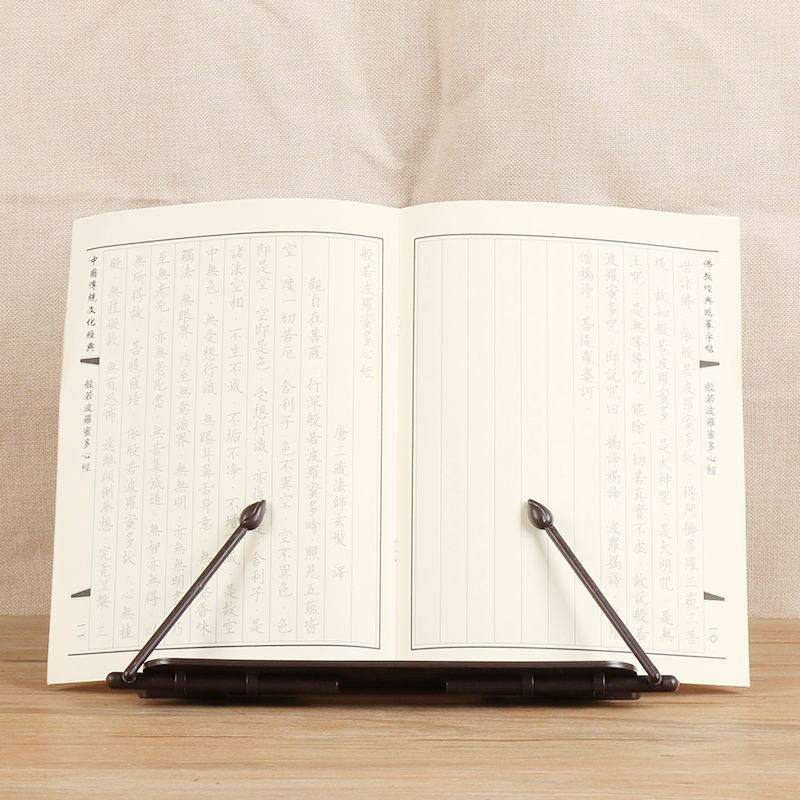 佛教經典臨摹字帖
般若波羅蜜多心經
一〇
世諸佛 依般若波羅蜜多故 得阿耨多羅三藐三菩
提 故知般若波羅蜜多 是大神咒 是大明咒 是無
上咒 是無等等咒 能除一切苦真實不虛 故說般若
波羅蜜多咒 即說咒曰 揭諦揭諦 波羅揭諦
僧揭諦 菩提薩婆訶
般若波羅蜜多心經
唐三藏法師玄奘 譯
觀自在菩薩·行深般若波羅蜜多時·照見五蘊皆
空·度一切苦厄·舍利子·色不異空·空不異色·色
即是空·空即是色·受想行識·亦復是·舍利子·是
諸法空相·不生不滅·不垢不淨·不減·是故空
中無色·無受想行識·無眼耳鼻舌身意·無香味
觸法·無眼界·乃至無意識界·無無明·亦無無明 乃
至無老死·亦無老死盡·無苦集滅道·無智亦無得·以
無所得故·菩提薩埵·依般若波羅蜜多故·心無挂
礙·無挂礙故·無有恐怖·遠離顛倒夢想·究竟涅槃·三
中國傳統文化經典
般若波羅蜜多心經
一一